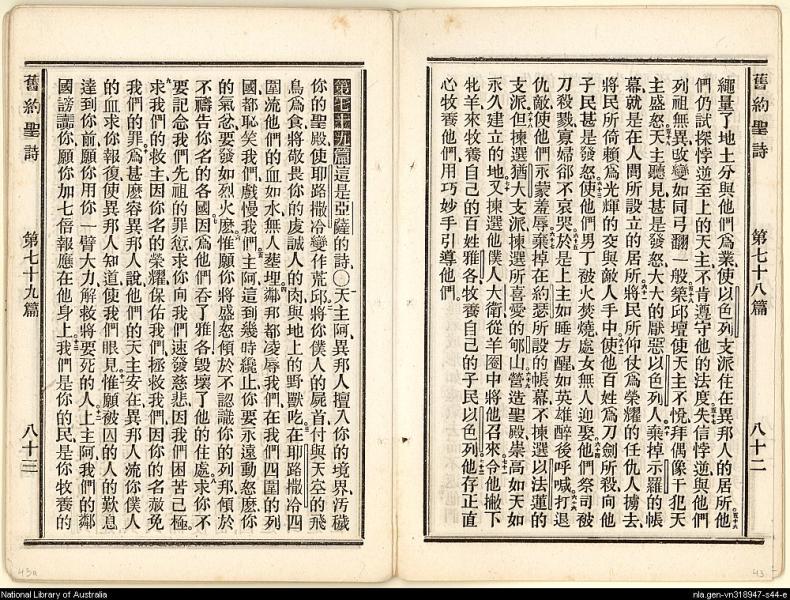 舊約聖詩
第七十八篇
八十二
繩量了地土分與他們爲業使以色列支派住在異邦人的居所他
們仍試探悖逆至上的天主不肯遵守他的法度失信悖逆與他們
列祖無異改變如同弓翻一般築邱壇使天主不悅拜偶像干犯天
主盛怒天主聽見甚是發怒大大的厭惡以色列人棄掉示羅的帳
幕就是在人間所設立的居所將民所仰仗爲榮耀的任仇人擄去
將民所倚賴爲光輝的交與敵人手中使他百姓爲刀劍所殺向他
子民甚是發怒使他們男丁被火焚燒處女無人迎娶他們祭司被
刀殺戮寡婦卻不哀哭於是上主如睡方醒如英雄醉後呼喊打退
仇敵使他們永蒙羞辱棄掉在約瑟所設的帳幕不揀選以法蓮的
支派但揀選猶大支派揀選所喜愛的郇山營造聖殿崇高如天如
永久建立的地又揀選他僕人大衛從羊圈中將他召來令他撇下
牝羊來牧養自己的百姓雅各牧養自己的子民以色列他存正直
心牧養他們用巧妙手引導他們
舊約聖詩
第七十九篇
八十三
第七十九篇這是亞薩的詩〇天主阿異邦人擅入你的境界汚穢
你的聖殿使耶路撒冷變作荒邱將你僕人的屍首付與天空的飛
鳥爲食將敬畏你的虔誠人的肉與地上的野獸吃在耶路撒冷四
圍流他們的血如水無人葬埋鄰邦都凌辱我們在我們四圍的列
國都恥笑我們戲慢我們主阿這到幾時纔止你要永遠動怒麼你
的氣忿要發如烈火麼惟願你將盛怒傾於不認識你的列邦傾於
不禱告你名的各國因爲他們吞了雅各毀壞了他的住處求你不
要記念我們先祖的罪愆求你向我們速發慈悲因我們困苦已極
求我們的救主因你名的榮耀保佑我們拯救我們因你的名赦免
我們的罪爲甚麼容異邦人說他們的天主安在異邦人流你僕人
的血求你報復使異邦人知道使我們眼見惟願被囚的人的歎息
達到你前願你用你一臂大力解救將要死的人上主阿我們的鄰
國謗讟你願你加七倍報應在他身上我們是你的民是你牧養的
43a
43
National Library of Australia
nla.gen-vn318947-s44-e